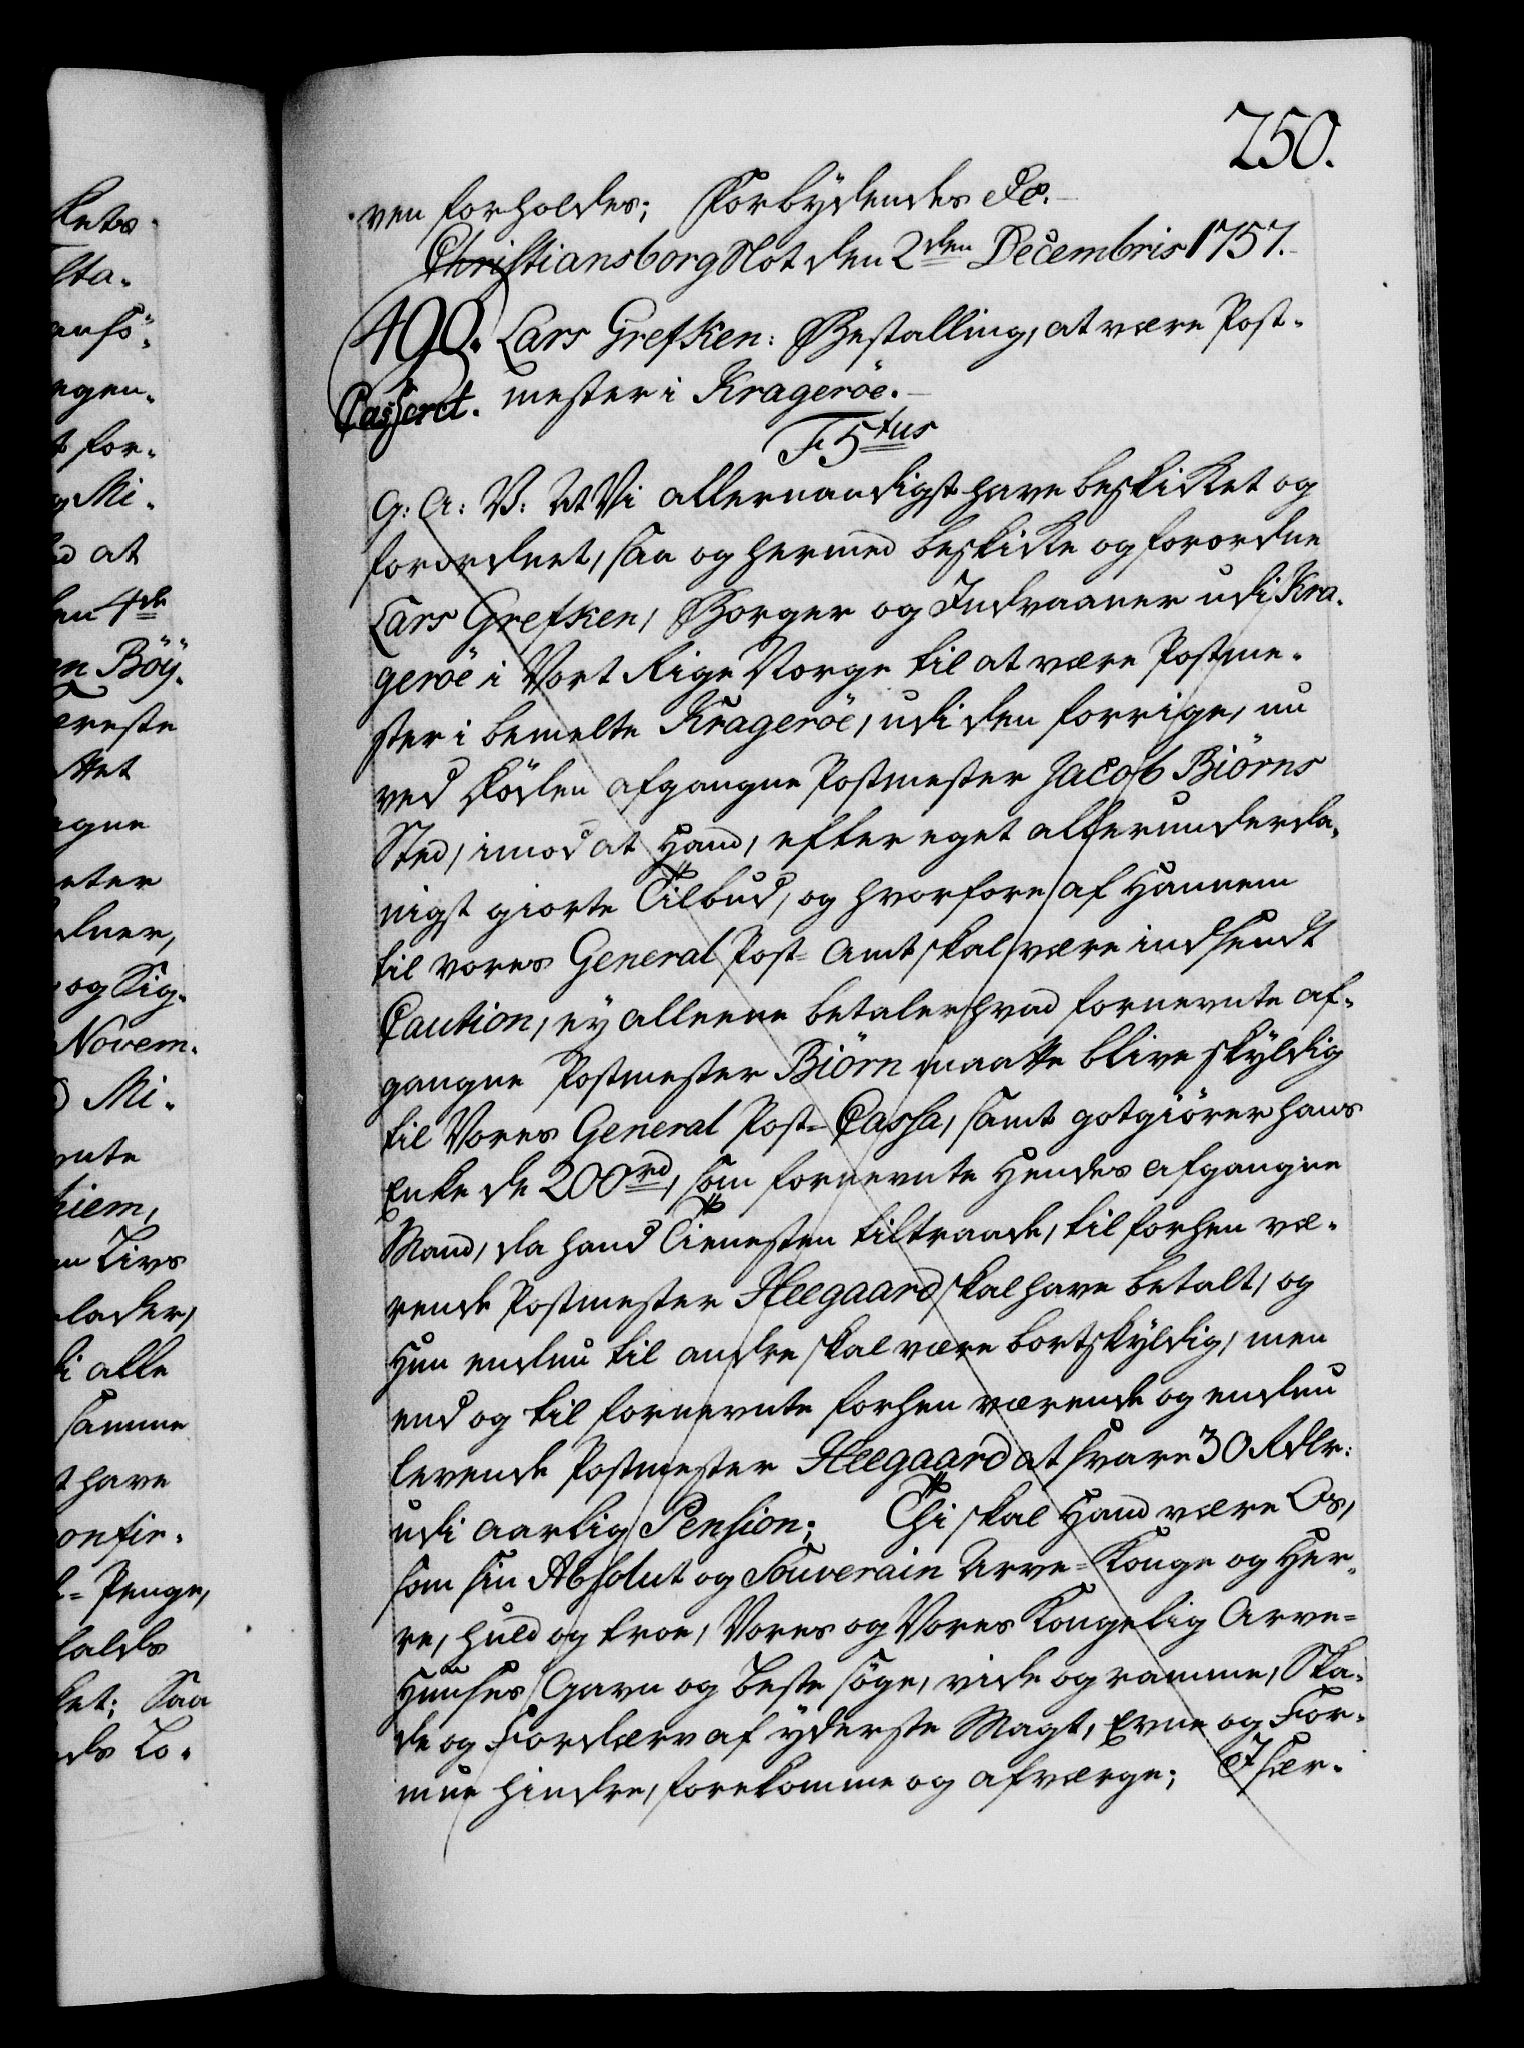 250.
ven forholdes; Forbydendes &c.
Christiansborg Slot den 2den Decembris 1757.
490. Lars Grefken: Bestalling, at være Post-
Casseret. mester i Krageröe.
F5tus
G: A: V: At Vi allernaadigst have beskikket og
forordnet, saa og hermed beskikke og forordne
Lars Grefken, Borger og Indvaaner udi Kra-
geröe i Vort Rige Norge til at være Postme-
ster i bemelte Krageröe, udi den forrige, nu
ved Döden afgangne Postmester Jacob Biörns
Sted, imod at Hand, efter eget allerunderda-
nigst giorte Tilbud, og hvorfore af Hannem
til vores General Post-Amt skal være indsendt
Caution, ey alleene betaler hvad fornevnte af-
gangne Postmester Biörn maatte blive skyldig
til Vores General Post-Cassa, samt gotgiörer hans
Enke de 200 rd, som fornevnte Hendes afgangne
Mand, da hand Tienesten tiltraade, til forhen væ-
rende Postmester Heegaard skal have betalt, og
Hun endnu til andre skal være bortskyldig, men
end og til fornevnte forhen værende og endnu
levende Postmester Heegaard at svare 30 Rdlr:
udi aarlig Pension; Thi skal Hand være Os,
som sin Absolut og Souverain Arve-Konge og Her-
re, huld og troe, Vores og Vores Kongelig Arve-
Huuses Gavn og Beste söge, vide og ramme, Ska-
de og Fordærv af yderste Magt, Evne og For-
mue hindre, forekomme og afværge; Især-